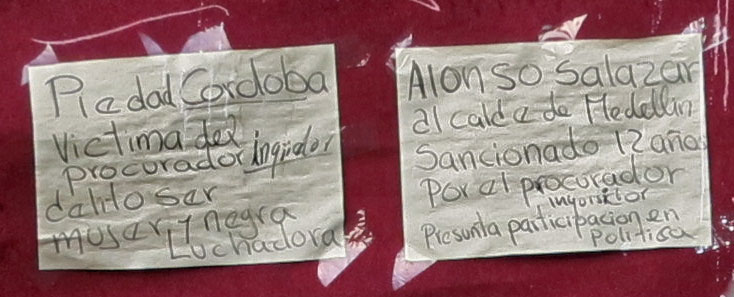 Piedad Cordoba
Victima del
procurador inquidor
delito ser
mujer y negra
Luchadora
Alonso Salazar
alcalde de Medellin
Sancionado 12 años
Por el procurador
inquisitor
Presunta participacion en
Politica